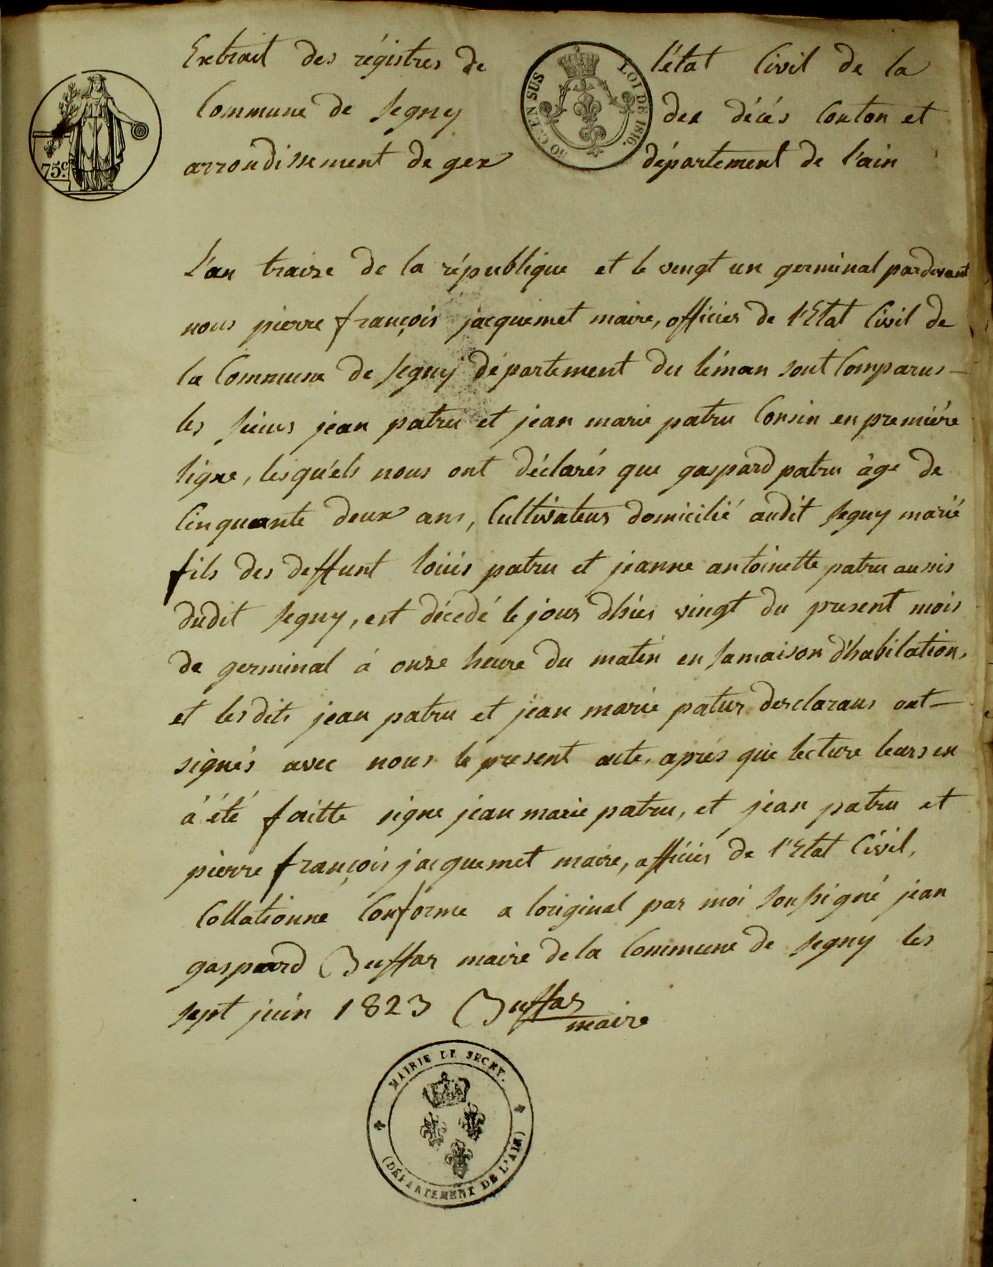 Extrait des régistres de l'état Civil de la
Commune de Segny des décés conton et
arrondissement de gex département de l'ain
75c
10 C. EN SUS LOI DE 1816.
L'an traize de la république et le vengt un germinal pardevant
nous pierre françois jacquemet maire, officier de l'Etat Civil de
la Commune de Segny département du léman sont Comparus
les sieurs jean patru et jean marie patru Consin en premiére
ligne, lesqu'els nous ont déclarés que gaspard patru âgé de
Cinquante deux ans, Cultivateur domicilié audit Segny marié
fils des deffunt loüis patru et jeanne antoinette patru aussis
dudit Segny, est décedé le jour d'hiér vingt du present mois
de germinal á onze heure du matin en sa maison d'habilation,
et lesdits jean patru et jean marie patur desclarans ont
signés avec nous le present acte, aprés que lecture leurs en
á été faitte signe jean marie patru, et jean patru et
pierre françois jacquemet maire, officiér de l'Etat Civil,
Collationné Conforme a loriginal par moi soussigné jean
gaspard Buffar maire de la Commune de Segny les
sept juin 1823 Buffar
maire
MAIRIE DE SEGNY.
(DÉPARTEMENT DE L'AIN)